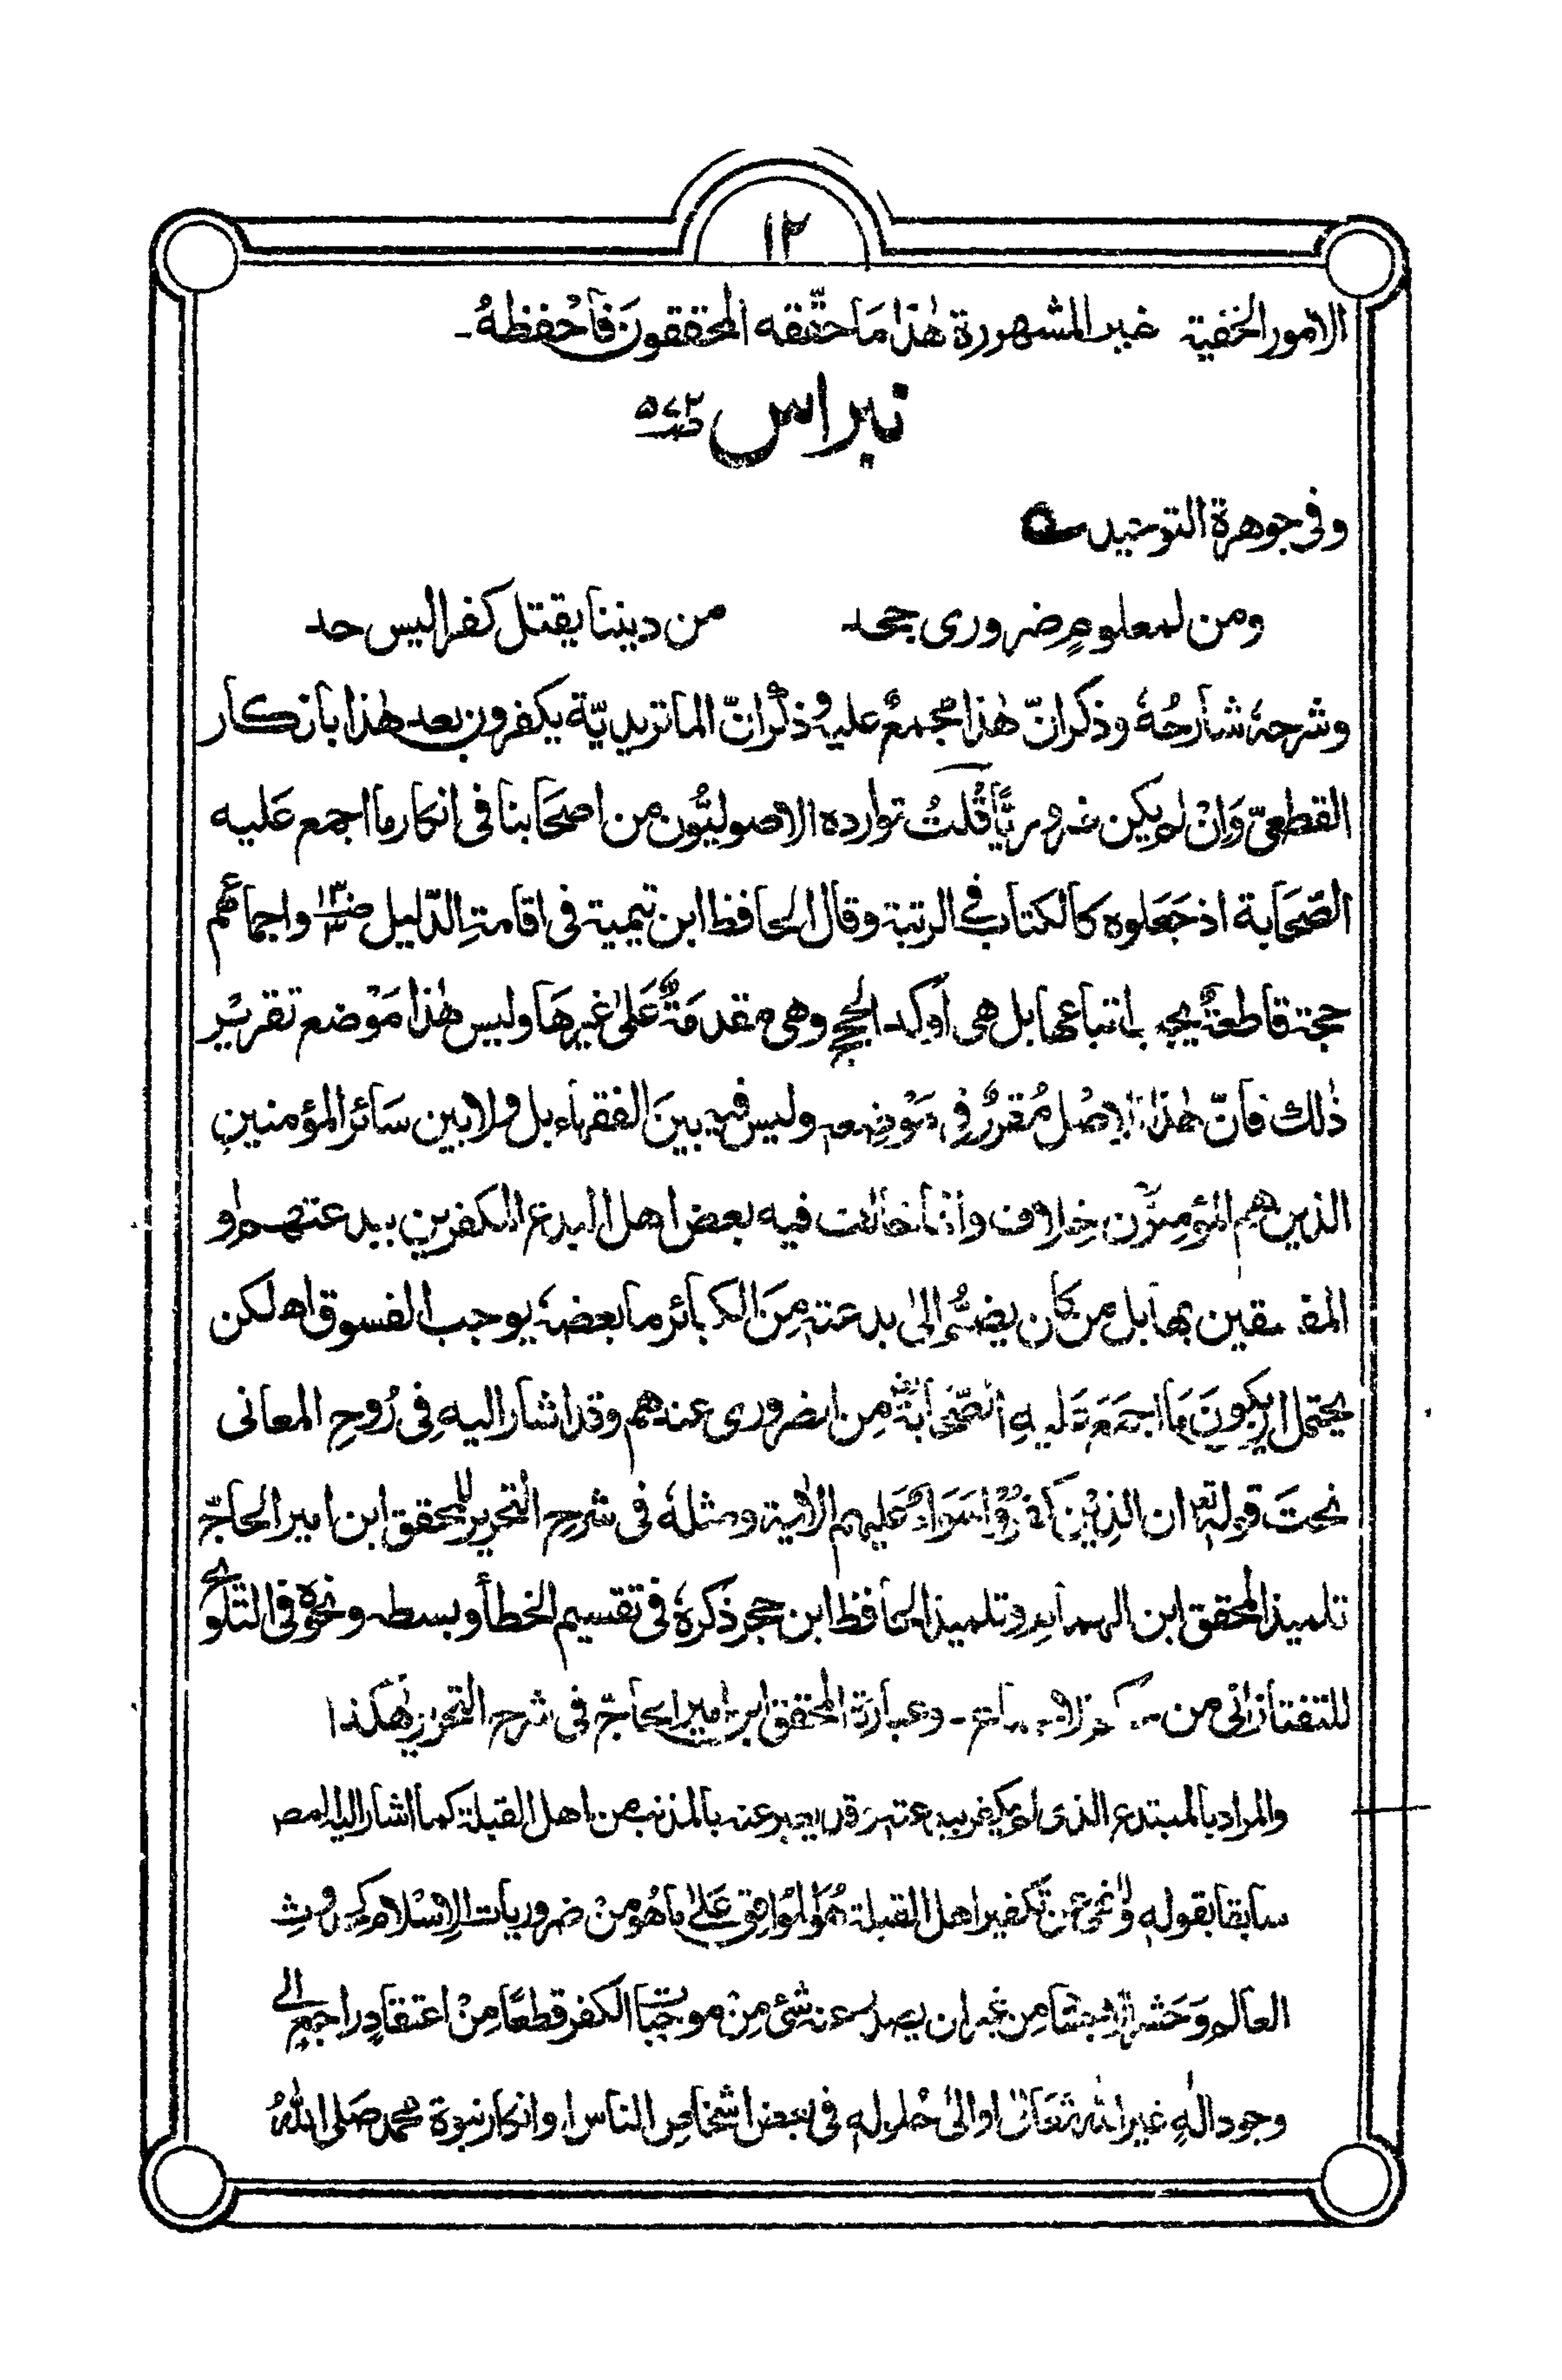 ١٢
الامور الخفية غير المشهورة هٰذا مَا حقّقه المحققونَ فَاحْفظهُ۔
نبراس ص۵۷۲
وفى جوهرة التوحيد
ومن لمعلومٍ ضرورى جحد من ديننا يقتل كفرا ليس حد
وشرحهٗ شارحُهٗ وذكر انّ هٰذا مُجمعٌ عليه وذكر انّ الماتريديّة يكفرون بعد هٰذا بانكار
القطعىّ وَاِنْ لم يكن ضروريًّا قُلتُ توارده الاصوليُّون من اصحَابنا فى انكار ما اجمع عَليه
الصّحَابة اذ جَعَلوه كالكتاب فى الرتبة وقال الحافظ ابن تيمية فى اقامةِ الدّليل ص١٣٠ واجماعُهم
حجة قاطعةٌ يجب اتباعها بل هى اَوكد الحجج وهى مقدمَةٌ عَلىٰ غيرِهَا وليس هٰذا مَوْضع تقريْرِ
ذٰلك فانّ هٰذا الاصْل مُقررٌ فى مَوْضِعه وليس فيه بينَ الفقهاء بل ولا بين سَائر المؤمنينِ
الذين هم المؤمنُون خِلاف وانما خالف فيه بعض اهل البدع المكفرين ببدعتهم او
المفسقين بها بل من كان يضُمُّ الىٰ بدعته مِنَ الكبائر ما بعضهٗ يوجب الفسوق اھ لكن
يحتمل ان يكونَ مَا اجمَعَ عَليهِ الصّحَابَةُ مِن الضرورى عندهم وقد اشار اليه فِى رُوحِ المعانى
تحتَ قوله تعالى ان الذِيْن كَفَرُوْا سَوَاءٌ عَليهم الاٰية ومثلهٗ فى شرحِ التحرير للمحقق ابن امير الحاجّ
تلميذ المحقق ابن الهمام وتلميذ الحافظ ابن حجر ذكرهٗ فى تقسيم الخطأ وبسطه ونحوه فى التلويح
للتفتازانى من وعبارة المحقق ابن امير الحاجّ فى شرح التحرير هٰكذا
والمراد بالمبتدع الذى لم يكفر ببدعته وقد يعبر عنه بالمذنب من اهل القبلة كما اشار اليه المص
سابقا بقوله وللنهى عن تكفير اهل القبلة هُوَ المُوَافِق عَلىٰ مَاهُو مِنْ ضروريات الاِسْلام كحدوثِ
العالم وَحَشر الاجسَام مِن غير ان يصدر عنه شئ مِنْ موجبَات الكفر قطعًا مِنْ اعتقادٍ راجعٍ الى
وجود الٰهٍ غير الله تعَالىٰ او الىٰ حُلوله فى بعض اشخاص الناس او انكار نبوة محمد صَلى اللهُ